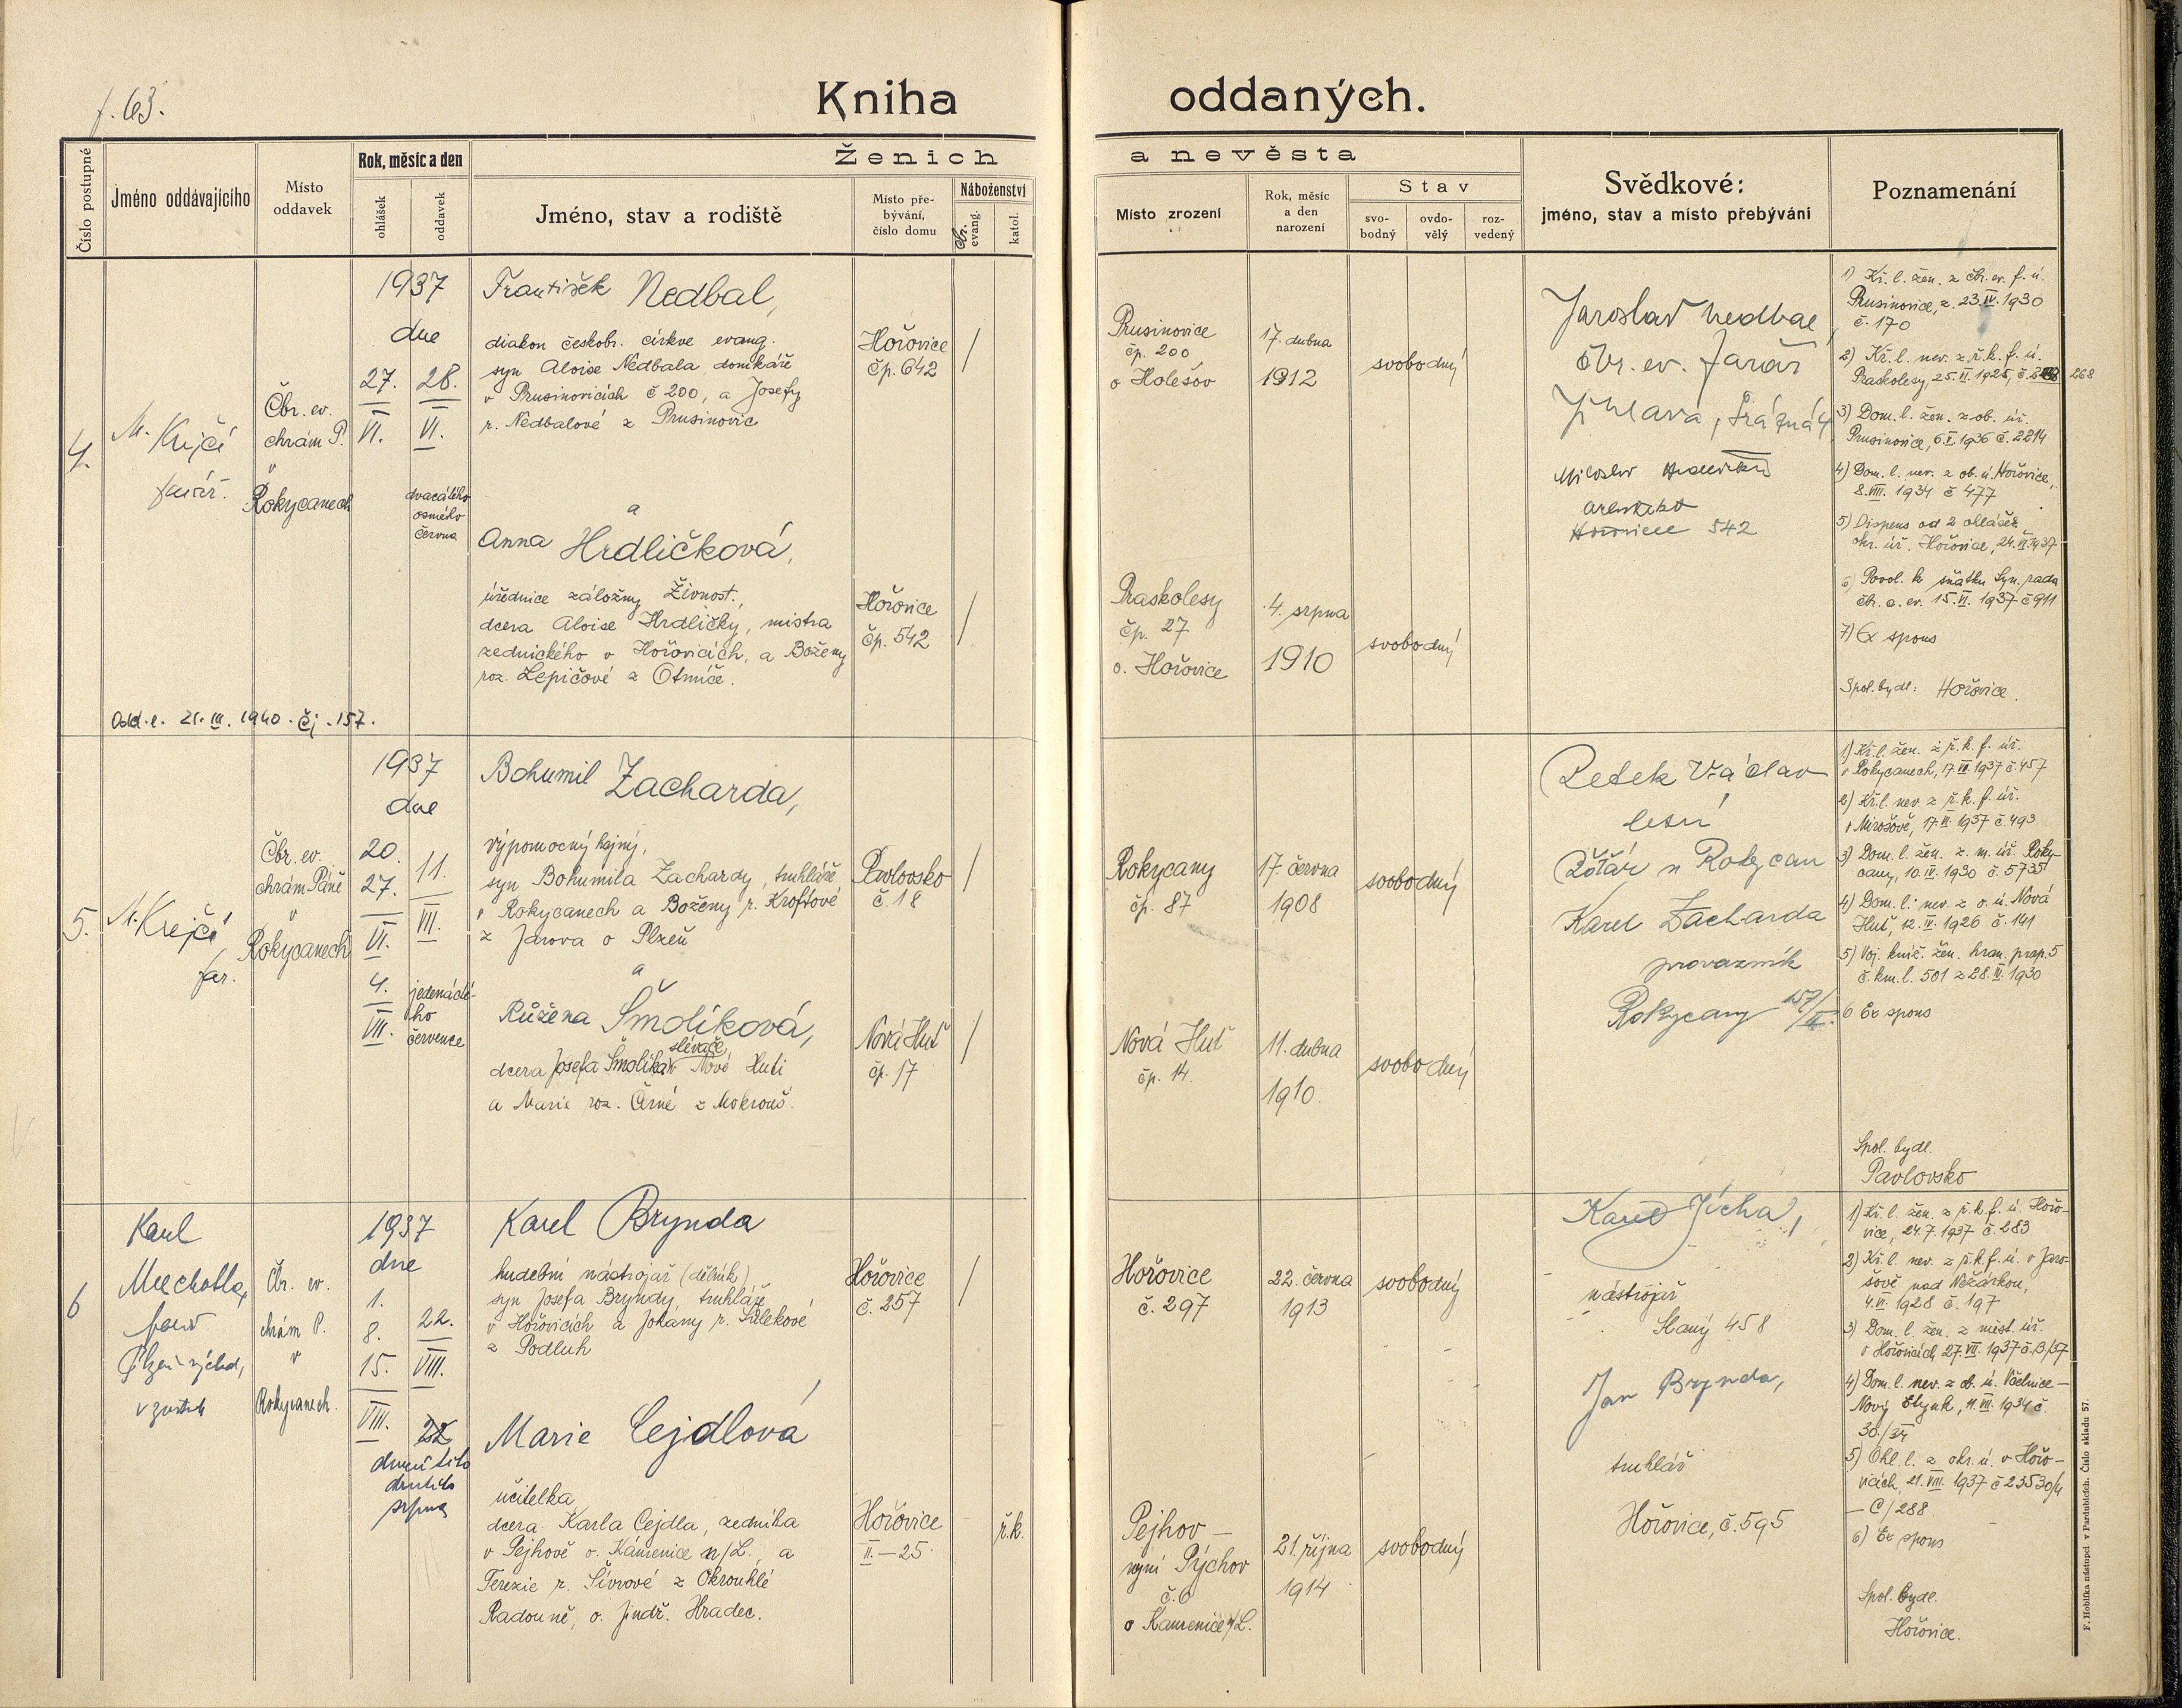 f. 63.
Kniha oddaných.
Číslo postupné
Jméno oddávajícího
Místo oddavek
Rok, měsíc a den
ohlášek
oddavek
Ženich a nevěsta
Jméno, stav a rodiště
Místo pře-
bývání,
číslo domu
Náboženství
čbr. evang.
katol.
Místo zrození
Rok, měsíc
a den
narození
Stav
svo-
bodný
ovdo-
vělý
roz-
vedený
Svědkové:
jméno, stav a místo přebývání
Poznamenání
4.
M. Krejčí
farář.
Čbr. ev.
chrám P.
v
Rokycanech
1937
dne
27. 28.
VI. VI.
dvacátého
osmého
června
František Nedbal,
diakon českobr. církve evang.
syn Aloise Nedbala domkáře
v Prusinovicích č 200, a Josefy
r. Nedbalové z Prusinovic
Hořovice
čp. 642
/
Prusinovice
čp. 200
o Holešov
17. dubna
1912
svobodný
a
Anna Hrdličková,
úřednice záložny Živnost.,
dcera Aloise Hrdličky, mistra
zednického v Hořovicích, a Boženy
roz. Lepičové z Otmíče.
Hořovice
čp. 542
/
Praskolesy
čp. 27
o. Hořovice
4. srpna
1910
svobodný
Jaroslav Nedbal
čbr. ev. farář
Jihlava,
Miloslav
Hořovice 542
1) Kř. l. žen. z čbr. ev. f. ú.
Prusinovice, z. 23.IV.1930
č. 170
2) Kř. l. nev. z ř. k. f. ú.
Praskolesy, 25.VI.1925, č. 268
3) Dom. l. žen. z ob. úř.
Prusinovice, 6.V.1936 č. 2214
4) Dom. l. nev. z ob. ú. Hořovice,
8.VIII. 1934 č 477
5) Dispens od 2 ohlášek
okr. úř. Hořovice, 24.VI.1937
6) Povol. k sňatku Syn. rada
čb. c. ev. 15.VI. 1937 č 911
7) Ex spons
Spol. bydl: Hořovice.
Odd. l. 21. III. 1940. Čj. 157.
5.
M. Krejčí,
far.
Čbr. ev.
chrám Páně
v
Rokycanech
1937
dne
20.
27. 11.
VI. VII.
4.
VII.
jedenácté-
ho
července
Bohumil Zacharda,
výpomocný hajný,
syn Bohumila Zachardy, truhláře
v Rokycanech a Boženy r. Kroftové
z Jarova o Plzeň
Pavlovsko
č. 18
/
Rokycany
čp. 87
17. června
1908
svobodný
a
Růžena Šmolíková,
slévače
dcera Josefa Šmolíka v Nové Huti
a Marie roz. Černé z Mokrouš.
Nová Huť
čp. 17
/
Nová Huť
čp. 14.
11. dubna
1910.
svobodný
Petek Václav
lesní
Žďár u Rokycan
Karel Zacharda
provazník
Rokycany 157/II.
1) Kř. l. žen. z ř. k. f. úř.
v Rokycanech, 17.VI.1937 č. 457
2) Kř. l. nev. z ř. k. f. úř.
v Mirošově, 17.VI.1937 č. 493
3) Dom. l. žen. z. m. úř. Roky-
cany, 10.IV.1930 č. 5735
4) Dom. l. nev. z o. ú. Nová
Huť, 12.IV.1926 č. 141
5) Voj. kníž. žen. hran. prap. 5
č. km. l. 501 z 28.IV.1930
6 Ex spons
Spol. bydl.
Pavlovsko
6
Karel
Muchotka,
farář
Plzeň východ,
v zastoup.
Čbr. ev.
chrám P.
v
Rokycanech.
1937
dne
1.
8. 22.
15. VIII.
VIII. 22
dvacátého
druhého
srpna
Karel Brynda
hudební nástrojař (dělník)
syn Josefa Bryndy, truhláře
v Hořovicích a Johany r. Šálekové
z Podluh
Hořovice
č. 257
/
Hořovice
č. 297
22. června
1913
svobodný
Marie Cejdlová
učitelka
dcera Karla Cejdla, zedníka
v Pejhově o. Kamenice n/L., a
Terezie r. Šívrové z Okrouhlé
Radouně, o. Jindř. Hradec.
Hořovice
II.–25
ř. k.
Pejhov –
nyní Pýchov
č. 6
o Kamenice n/L.
21. října
1914
svobodný
Karel Jícha,
nástrojař
Slaný 458
Jan Brynda,
truhlář
Hořovice, č. 595
1) Kř. l. žen. z ř. k. f. ú. Hořo-
vice, 24.7.1937 č. 283
2) Kř. l. nev. z ř. k. f. ú. v Jaro-
šově nad Nežárkou,
4.VI. 1928 č. 197
3) Dom. l. žen. z měst. úř.
v Hořovicích 27.VII. 1937 č. B/37
4) Dom. l. nev. z ob. ú. Včelnice –
Nový Etynk, 11.VII. 1934 č.
30/34
5) Ohl. l. z okr. ú. v Hořo-
vicích, 21.VIII. 1937 č 23530/4
– C/288
6) Ex spons
Spol. bydl.
Hořovice.
F. Hoblíka nástupci v Pardubicích. Číslo skladu 57.